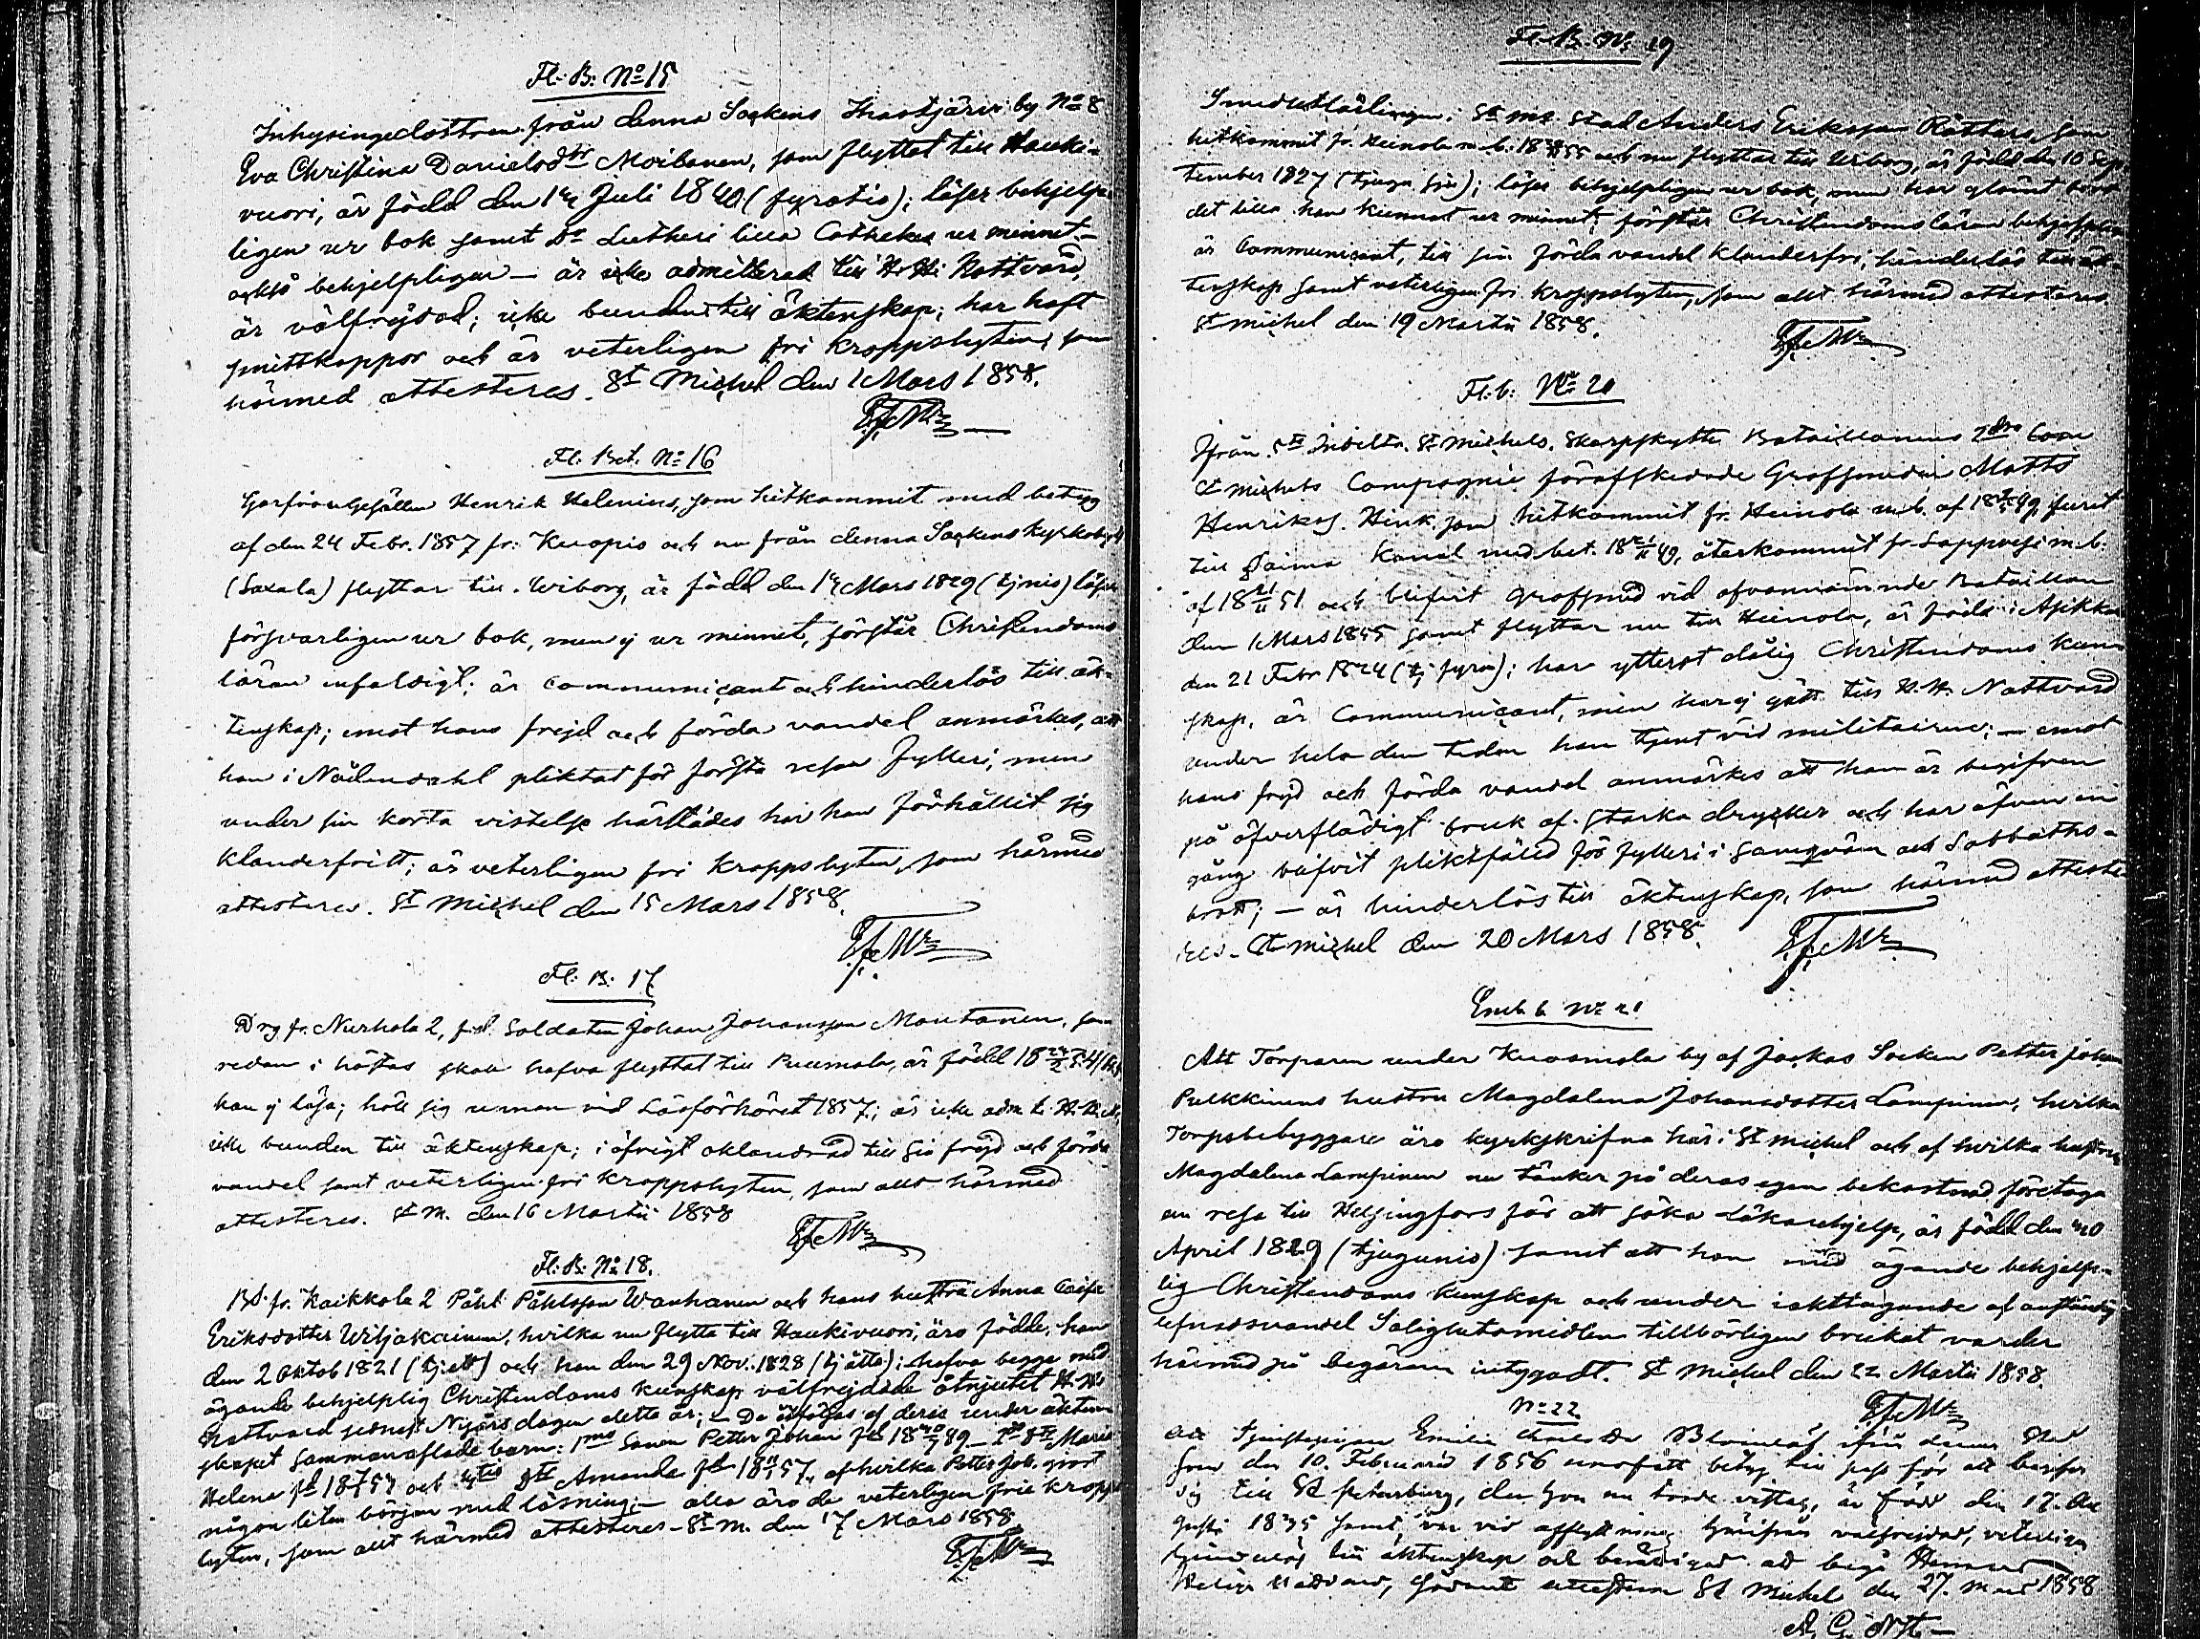 Fl: B: No 15
Inhysingedottren från denna Sockens Ihastjärvi by No 8
Eva Christina Danielsdtr Moilanen, som flyttat till Hauki-
vuori, är född den 1 Juli 1840 (fyratio); läser behjelp-
ligen ur bok samt Dr Lutheri lilla Cathekes ur minnet
också behjelpligen — är icke admitterad till H. H. Nattvard,
är välfrejdad; icke bunden till äktenskap; har haft
smittkoppor och är veterligen fri kroppslyten, som
härmed attesteras. St Michel den 1 Mars 1858.
Fl: Bet. No 16
Garfvaregesällen Henrik Helenius, som hitkommit med betyg
af den 24 Febr. 1857 fr: Kuopio och nu från denna Sockens Kyrkoby
(Saxala) flyttar till Wiborg, är född den 1 Mars 1829 (tj nio) läser
försvarligen ur bok, men ej ur minnet, förstår Christendoms
läran enfaldigt; är communicant och hinderlös till äk-
tenskap; emot hans frejd och förda vandel anmärkes, att
han i Nådendahl pliktat för första resan fylleri, men
under sin korta vistelse härstädes har han förhållit sig
klanderfritt; är veterligen fri kroppslyten, som härmed
attesteras. St Michel den 15 Mars 1858.
Fl: B: 17
Drg fr. Nurhola 2, f.d. Soldaten Johan Johansson Montonen, som
redan i höstas skall hafva flyttat till Puumala, är född 18
kan ej läsa; höll sig undan vid Läsförhöret 1857; är icke adm t. H. H. N.
icke bunden till äktenskap; i öfrigt oklandrad till sin frejd och förda
vandel samt veterligen fri kroppslyten, som allt härmed
attesteras. St M. den 16 Martii 1858
Fl: B: No 18.
Bd. fr. Kaikkola 2 Påhl Påhlsson Wanhanen och hans hustru Anna Caisa
Eriksdotter Wiljakainen, hvilka nu flytta till Haukivuori, äro födde, han
den 2 Oktob 1821 (tj ett) och hon den 29 Nov. 1828 (tj åtta); hafva begge med
ägande behjelplig Christendoms kunskap välfrejdade åtnjutit H. H.
Nattvard sednast Nyårsdagen detta år; — De åtföljas af deras under äkten-
skapet sammanaflade barn: 1mo Sonen Petter Johan fd 18 — Maria
Helena fd 18 och Amanda fd 18 57, af hvilka Petter Joh. gjort
någon liten början med läsning; — alla äro de veterligen fria kropps-
lyten, som allt härmed attesteras — St M. den 17 Mars 1858
Fl. B. No 19
i St M: Stad Anders Eriksson Rättäri, som
hitkommit fr. Heinola m. b. 18 55 och nu flyttar till Wiborg, är född den 10 Sep-
tember 1827 (tjugu sju); läser behjelpligen ur bok, men har glömt bort
det lilla han kunnat ur minnet; förstår Christendomsläran behjelpligen
är Communicant, till sin förda vandel klanderfri, hinderlös till äk-
tenskap samt veterligen fri kroppslyten, som allt härmed attesteras.
St Michel den 19 Martii 1858.
Fl: b: No 20
Ifrån 5te Indelta St Michels Skarpskytte Bataillonens 2dra
St Michels Compagnie förafskedade Grofsmeden Matts
Henrikss. Hink, som hitkommit fr. Heinola m. b. af 18 49, farit
till Saima Kanal med bet. 18 49, återkommit fr. Lappvesi m. b.
af 18 51 och blifvit grofsmed vid ofvannämnde Bataillon
den 1 Mars 1855 samt flyttar nu till Heinola, är född i Asikkala
den 21 Febr 1824 (tj fyra); har ytterst dålig Christendoms kun-
skap, är Communicant, men har ej gått till H. H. Nattvard
under hela den tiden han tjent vid militairen; — emot
hans frejd och förda vandel anmärkes att han är begifven
på öfverflödigt bruk af starka drycker och har äfven en
gång blifvit pliktfälld för fylleri i samqväm och Sabbaths-
brott; — är hinderlös till äktenskap, som härmed atteste-
ras. St Michel den 20 Mars 1858.
b No 21
Att Torparen under Kuosmala by af Jockas Socken Petter Johan
Pulkkinens hustru Magdalena Johansdotter Lampinen, hvilka
Torpsbebyggare äro kyrkskrifna här i St Michel och af hvilka hustrun
Magdalena Lampinen nu tänker på deras egen bekostnad företaga
en resa till Helsingfors för att söka Läkarehjelp, är född den 20
April 1829 (tjugunio) samt att hon med ägande behjelp-
lig Christendoms kunskap och under iakttagande af anständig
lefnadsvandel Salighetsmedlen tillbörligen brukat varder
härmed på begäran intygadt. St Michel den 22 Martii 1858.
No 22
Att Tjenstepigan Emilia från denna Stad
som den 10. Februarii 1856 betyg till pass för att begifva
sig till St Petersburg, der hon nu torde vistas, är född den 17. Au-
gusti 1835 samt, var vid afflyttning härifrån välfrejdad, veterligen
hinderlös till äktenskap och berättigad att begå Herrans
Heliga Nattvard, St Michel den 27. Mars 1858